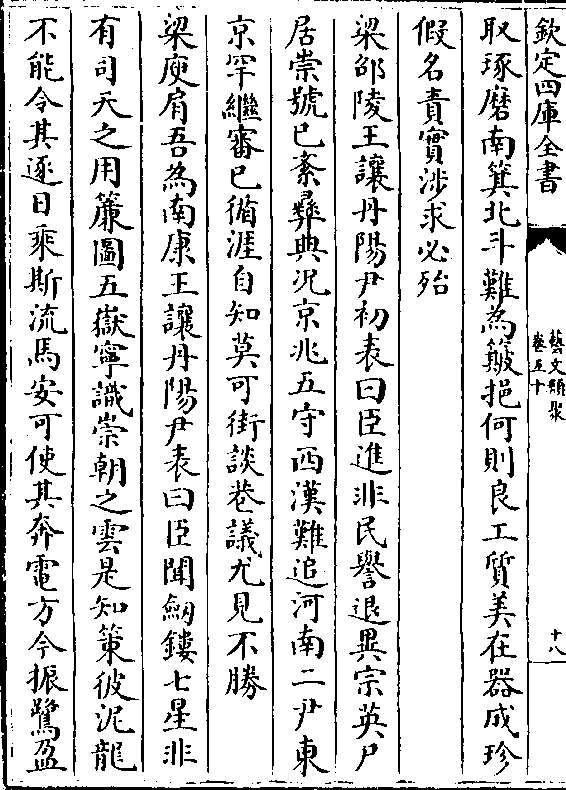 欽定四庫全書
藝文類聚
卷五十
十八
取琢磨南箕北斗難為簸挹何則良工質美在器成珍
假名責實涉求必殆
梁邵陵王讓丹陽尹初表曰臣進非民譽退異宗英尸
居崇號已紊彛典况京兆五守西漢難追河南二尹東
京罕繼審已循涯自知莫可街談巷議尤見不勝
梁庾肩吾為南康王讓丹陽尹表曰臣聞劒鏤七星非
有司天之用簾圖五嶽寧識崇朝之雲是知策彼泥龍
不能令其逐日乘斯流馬安可使其奔電方今振鷺盈